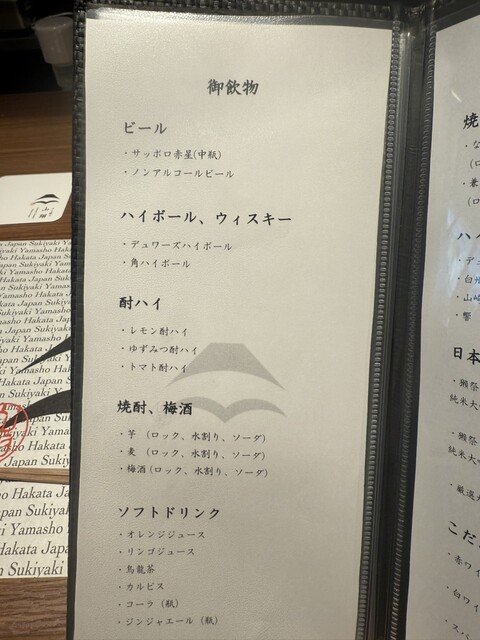 御飲物
ビール
・サッポロ赤星(中瓶)
・ノンアルコールビール
ハイボール、ウィスキー
・デュワーズハイボール
・角ハイボール
酎ハイ
・レモン酎ハイ
・ゆずみつ酎ハイ
・トマト酎ハイ
焼酎、梅酒
・芋 (ロック、水割り、ソーダ)
・麦 (ロック、水割り、ソーダ)
・梅酒(ロック、水割り、ソーダ)
ソフトドリンク
・オレンジジュース
・リンゴジュース
・烏龍茶
・カルピス
・コーラ (瓶)
・ジンジャエール (瓶)
焼
・な
(ロ
・兼
(ロ
ハイ
・デュ
・白州
・山崎
・響
日本
・獺祭
純米大
・獺祭
純米大
・厳選
こだ
・赤ワイ
・白ワイ
Japan Sukiyaki Yamasho Hakata Japan Sukiyaki